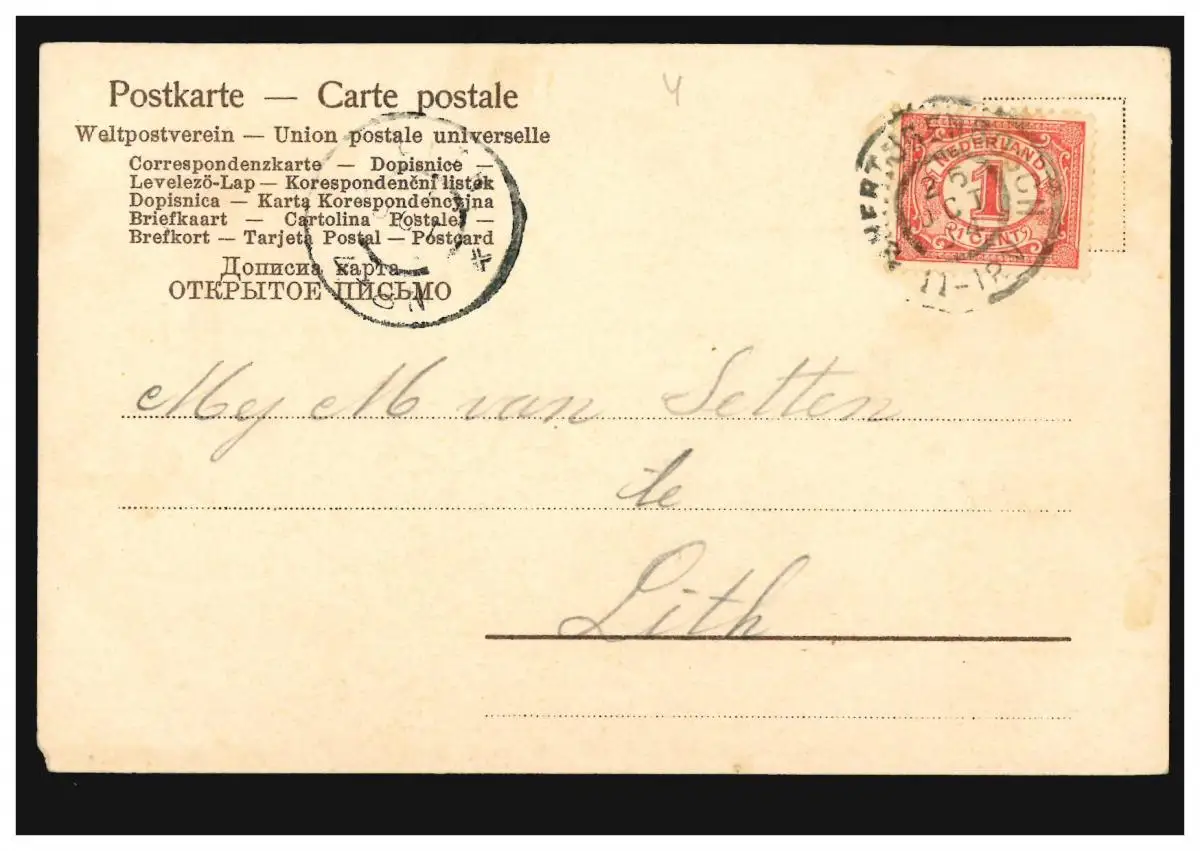 Postkarte — Carte postale
Weltpostverein — Union postale universelle
Correspondenzkarte — Dopisnice —
Levelező-Lap — Korespondenční lístek
Dopisnica — Karta Korespondencyjna
Briefkaart — Cartolina Postale —
Brefkort — Tarjeta Postal — Postcard
Дописна карта
ОТКРЫТОЕ ПИСЬМО
4
NEDERLAND
1
1 CENT
OCT
11-12
Mej M van Setten
te
Lith